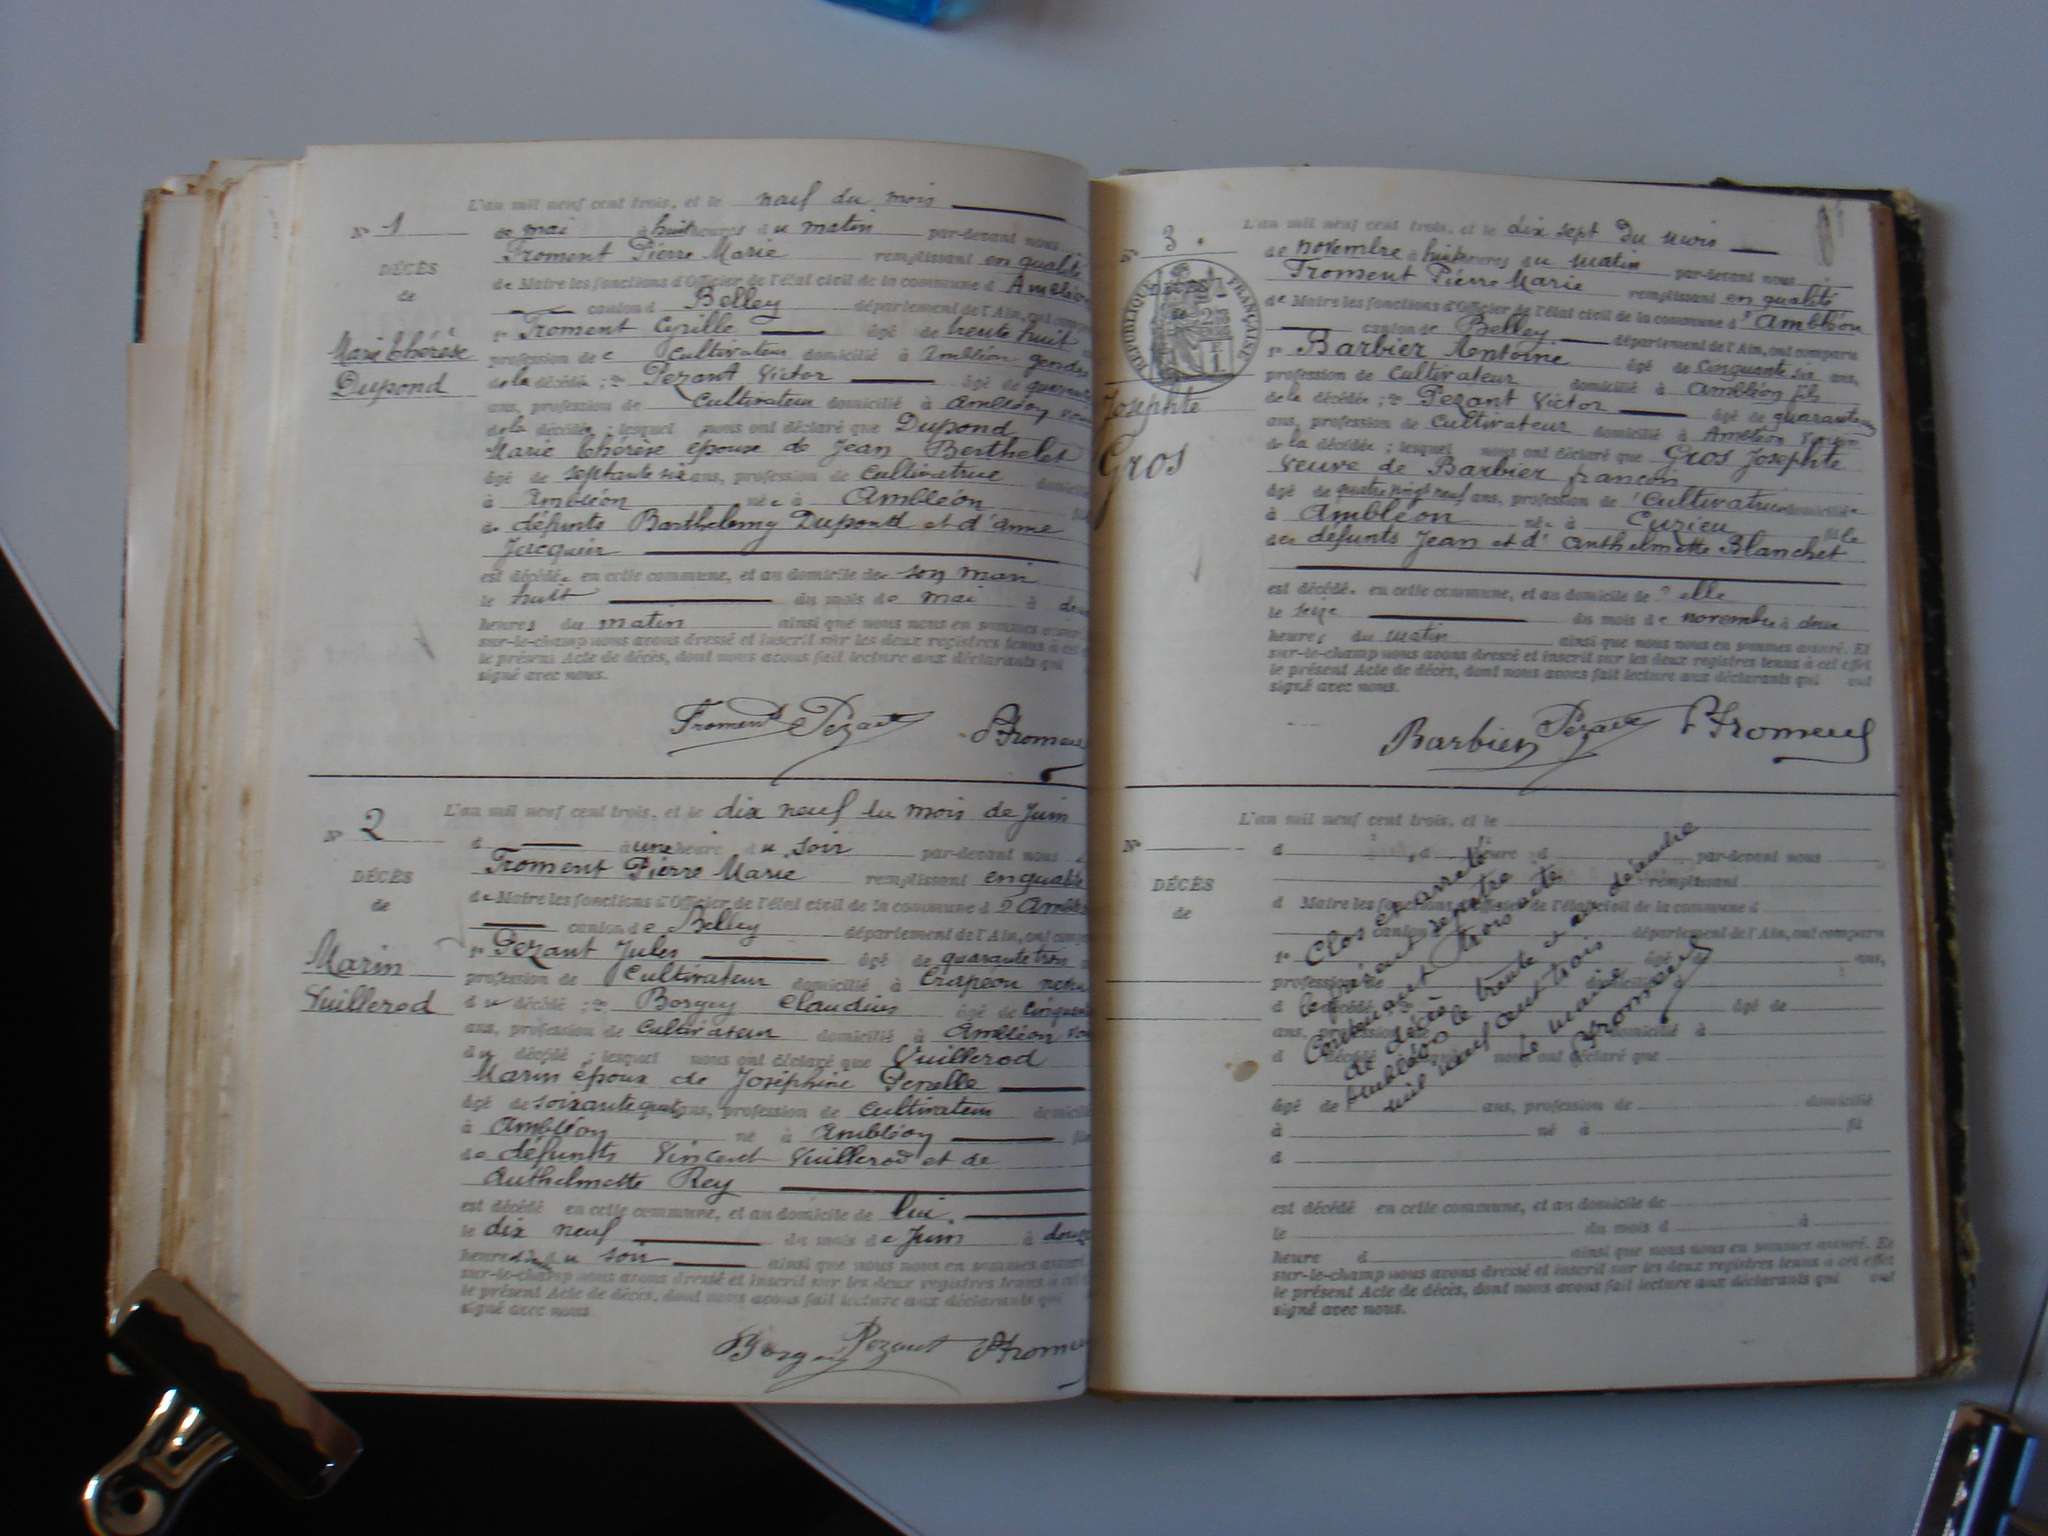 L'an mil neuf cent trois, et le neuf du mois
N° 1
de mai à huit heures du matin par-devant nous
Froment Pierre Marie remplissant en qualité
DÉCÈS
de Maire les fonctions d'Officier de l'état civil de la commune d'Ambléon
de
canton de Belley département de l'Ain, ont comparu
1° Froment Cyrille âgé de trente huit
Marie thérèse
profession de cultivateur domicilié à Ambléon gendre
Dupond
de la décédée ; 2° Pezant Victor âgé de quarante
ans, profession de cultivateur domicilié à Ambléon
de la décédée ; lesquel nous ont déclaré que Dupond
Marie thérèse épouse de Jean Berthelet
âgé de septante six ans, profession de Cultivatrice domicilié
à Ambléon née à Ambléon
de défunts Barthelemy Dupond et d'Anne
Jacquier
est décédée en cette commune, et au domicile de son mari
le huit du mois de mai à deux
heures du matin ainsi que nous nous en sommes assuré
sur-le-champ nous avons dressé et inscrit sur les deux registres tenus à cet
le présent Acte de décès, dont nous avons fait lecture aux déclarants qui
signé avec nous.
Froment Pezant P Froment
L'an mil neuf cent trois, et le dix neuf du mois de Juin
N° 2
d à une heure du soir par-devant nous
Froment Pierre Marie remplissant en qualité
DÉCÈS
de Maire les fonctions d'Officier de l'état civil de la commune d'Ambléon
de
canton de Belley département de l'Ain, ont comparu
1° Pezant Jules âgé de quarante trois
Marin
profession de Cultivateur domicilié à Crapéou neveu
Vuillerod
du décédé ; 2° Borgey Claudius âgé de cinquante
ans, profession de Cultivateur domicilié à Ambléon
du décédé ; lesquel nous ont déclaré que Vuillerod
Marin époux de Joséphine Penelle
âgé de soixante quatre ans, profession de cultivateur domicilié
à Ambléon né à Ambléon fils
de défunts Vincent Vuillerod et de
Anthelmette Rey
est décédé en cette commune, et au domicile de lui.
le dix neuf du mois de Juin à douze
heures du soir ainsi que nous nous en sommes assuré
sur-le-champ nous avons dressé et inscrit sur les deux registres tenus à cet
le présent Acte de décès, dont nous avons fait lecture aux déclarants qui
signé avec nous.
Borgey Pezant P Froment
L'an mil neuf cent trois, et le dix sept du mois
N° 3.
de novembre à huit heures du matin par-devant nous
Froment Pierre Marie remplissant en qualité
RÉPUBLIQUE FRANÇAISE
de Maire les fonctions d'Officier de l'état civil de la commune d'Ambléon
canton de Belley département de l'Ain, ont comparu
1° Barbier Antoine âgé de Cinquante six ans,
profession de Cultivateur domicilié à Ambléon fils
Josephte
de la décédée ; 2° Pezant Victor âgé de quarante
ans, profession de Cultivateur domicilié à Ambléon voisin
Gros
de la décédée ; lesquel nous ont déclaré que Gros Josephte
veuve de Barbier françon
âgé de quatre vingt neuf ans, profession de Cultivatrice domicilié
à Ambléon née à Cuzieu fille
des défunts Jean et d'Anthelmette Blanchet
est décédée en cette commune, et au domicile de d'elle
le seize du mois de novembre à deux
heures du matin ainsi que nous nous en sommes assuré. Et
sur-le-champ nous avons dressé et inscrit sur les deux registres tenus à cet effet
le présent Acte de décès, dont nous avons fait lecture aux déclarants qui ont
signé avec nous.
Barbier Pezant P Froment
L'an mil neuf cent trois, et le
N°
d à heure d par-devant nous
remplissant
DÉCÈS
d Maire les fonctions d'Officier de l'état civil de la commune d
de
canton d département de l'Ain, ont comparu
1° âgé d ans,
profession domicilié à
d décédé ; 2° âgé de
ans, profession domicilié à
d décédé lesquel nous ont déclaré que
âgé de ans, profession de domicilié
à né à fil
d
est décédé en cette commune, et au domicile de
le du mois d à
heure d ainsi que nous nous en sommes assuré. Et
sur-le-champ nous avons dressé et inscrit sur les deux registres tenus à cet effet
le présent Acte de décès, dont nous avons fait lecture aux déclarants qui ont
signé avec nous.
Clos et arrêté
le présent registre
Contenant trois actes
de décès
Ambléon le trente et un décembre
mil neuf cent trois
le maire
P Froment